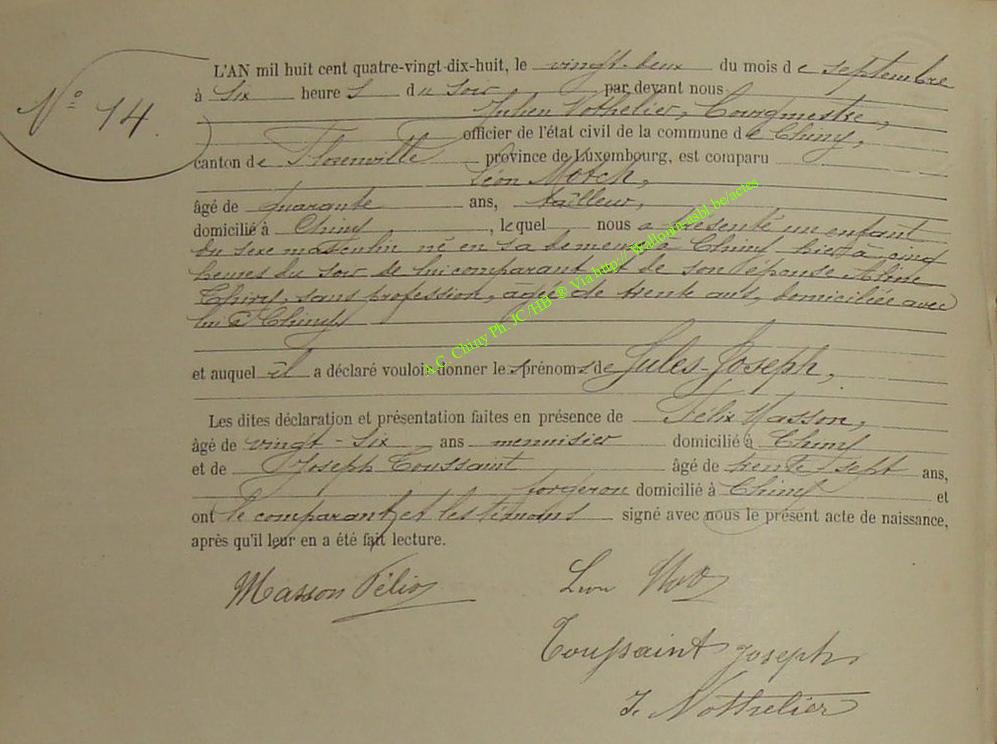 N° 14.
L'AN mil huit cent quatre-vingt-dix-huit, le vingt-deux du mois de septembre
à six heures du soir par devant nous
Julien Nothelier, Bourgmestre,
officier de l'état civil de la commune de Chiny,
canton de Florenville province de Luxembourg, est comparu
Léon
âgé de quarante ans, tailleur,
domicilié à Chiny, lequel nous a présenté un enfant
du sexe masculin né en sa demeure à Chiny hier à cinq
heures du soir de lui comparant et de son épouse Aline
Thiry, sans profession, âgée de trente ans, domiciliée avec
lui à Chiny
et auquel il a déclaré vouloir donner les prénoms de Jules-Joseph,
Les dites déclaration et présentation faites en présence de Félix Masson,
âgé de vingt-six ans menuisier domicilié à Chiny
et de Joseph Toussaint âgé de trente-sept ans,
forgeron domicilié à Chiny et
ont le comparant et les témoins signé avec nous le présent acte de naissance,
après qu'il leur en a été fait lecture.
Masson Félix
Léon
Toussaint Joseph
J. Nothelier
A.G. Chiny Ph. JC/HB ® Via http://Walloniaasbl.be/actes